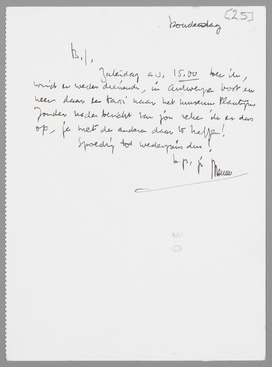 donderdag [25]
B.J.
Zaterdag a.s. 15.00 ben ik,
wind en weder dienende, in Antwerpen
neem daar een taxi naar het museum Plantijn
Zonder nader bericht van jou reken ik er dus
op, je met de anderen daar te treffen!
Spoedig tot wederziens dus!
h.gr. je